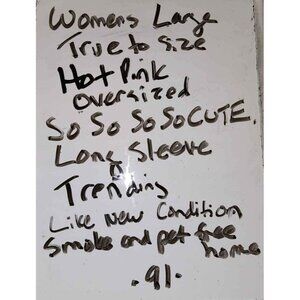 Womens Large
True to size
Hot Pink
oversized
So So So So CUTE.
Long Sleeve
Trending
Like New Condition
Smoke and pet free
home
.91.